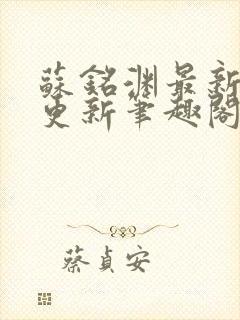 蘇銘淵最新
更新筆趣閣
蔡貞安